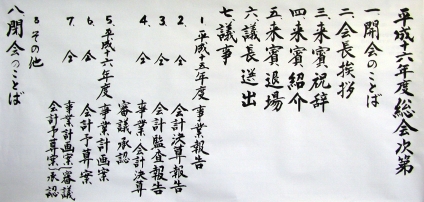 平成十六年度総会次第
一開会のことば
二会長挨拶
三来賓祝辞
四来賓紹介
五来賓退場
六議長送出
七議事
1.平成十五年度事業報告
2.仝会計決算報告
3.仝会計監査報告
4.仝事業会計決算審議承認
5.平成十六年度事業計画案
6.仝会計予算案
7.仝事業計画案審議会計予算案承認
8その他
八閉会のことば